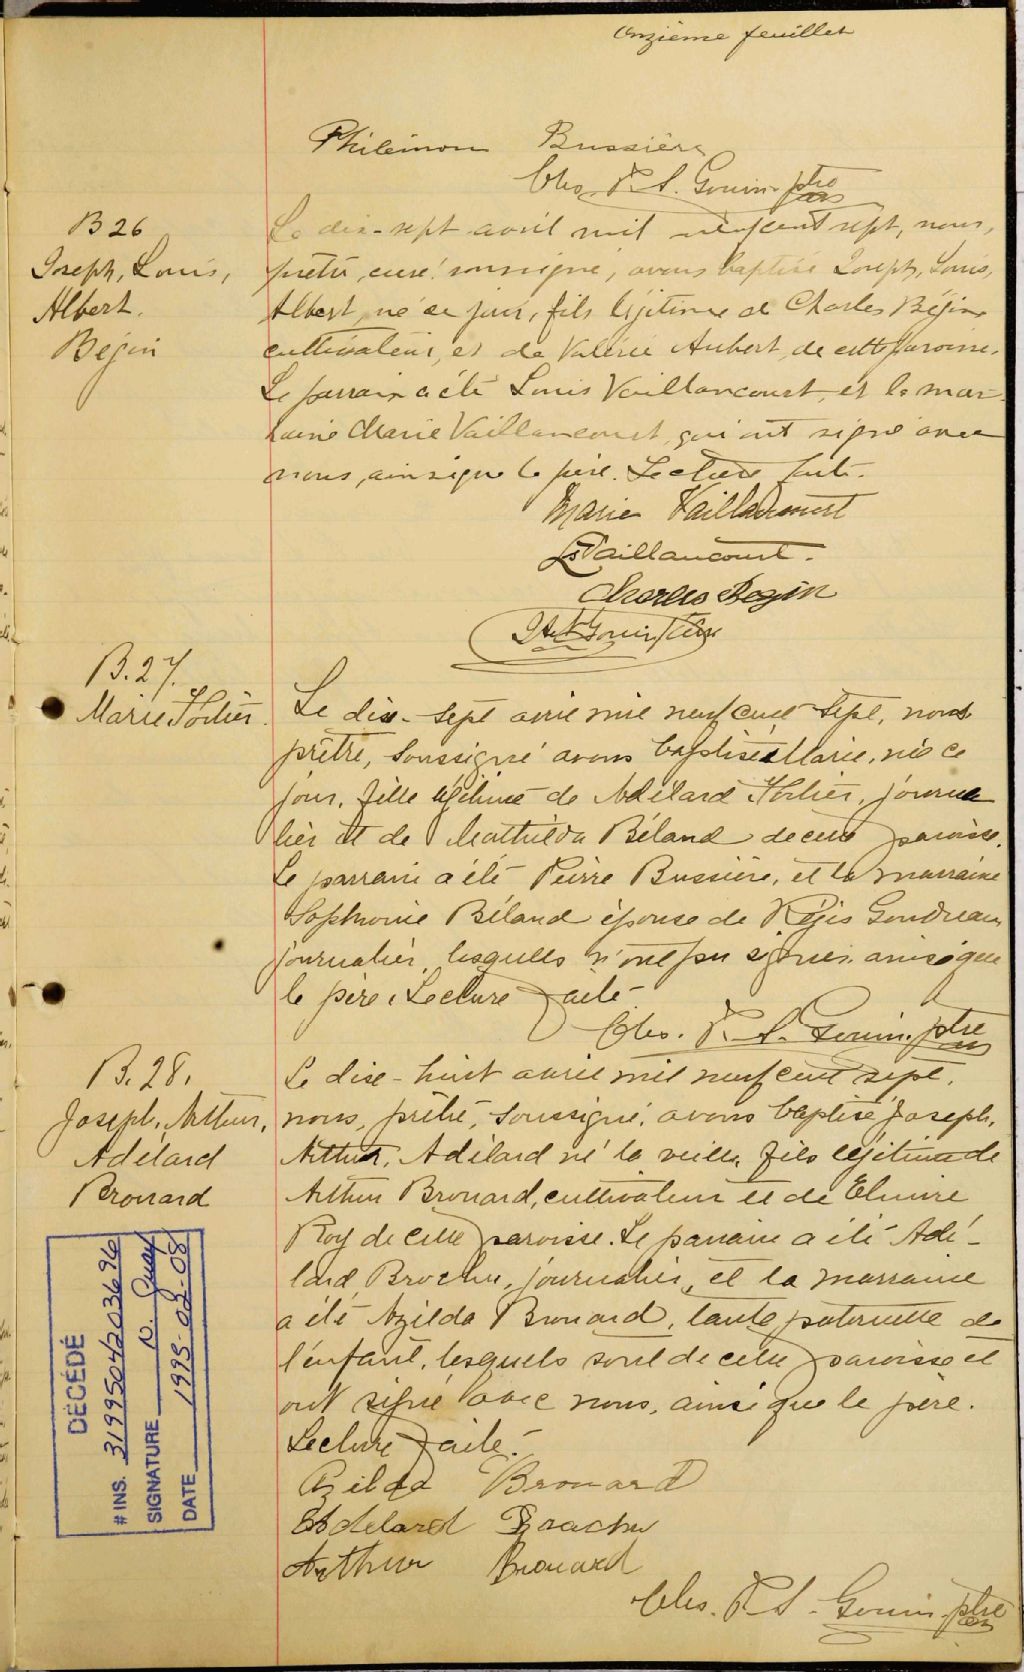 onzième feuillet
Philémon Bussière
Chs. F. S. Gouin ptre
B 26
Joseph, Louis,
Albert.
Bégin
Le dix-sept avril mil neuf cent sept, nous,
prêtre, curé soussigné, avons baptisé Joseph, Louis,
Albert, né ce jour, fils légitime de Charles Bégin
cultivateur, et de Valérie Aubert, de cette paroisse.
Le parrain a été Louis Vaillancourt, et la mar-
raine Marie Vaillancourt, qui ont signé avec
nous, ainsi que le père. Lecture faite.
Marie Vaillancourt
Ls Vaillancourt.
Charles Begin
Gouin Ptre
B. 27.
Marie Fortier.
Le dix-sept avril mil neuf cent sept, nous
prêtre, soussigné avons baptisé Marie, née ce
jour, fille légitime de Adélard Fortier, journa
lier et de Mathilda Béland de cette paroisse.
Le parrain a été Pierre Bussière, et la marraine
Sophronie Béland épouse de Régis Goudreau
journalier, lesquels n'ont pu signer ainsi que
le père. Lecture faite.
Chs. F. S. Gouin. ptre
B. 28.
Joseph, Arthur,
Adélard
Brouard
Le dix-huit avril mil neuf cent sept,
nous, prêtre, soussigné, avons baptisé Joseph,
Arthur, Adélard né la veille, fils légitime de
Arthur Brouard, cultivateur et de Elmire
Roy de cette paroisse. Le parrain a été Adé-
lard Brochu, journalier, et la marraine
a été Azilda Brouard, tante paternelle de
l'enfant, lesquels sont de cette paroisse et
ont signé avec nous, ainsi que le père.
Lecture faite.
Azilda Brouard
Adelard Broachu
Arthur Brouard
Chs. F. S. Gouin. ptre
DÉCÉDÉ
# INS. 3199504203696
SIGNATURE N. Guay
DATE 1995-02-08